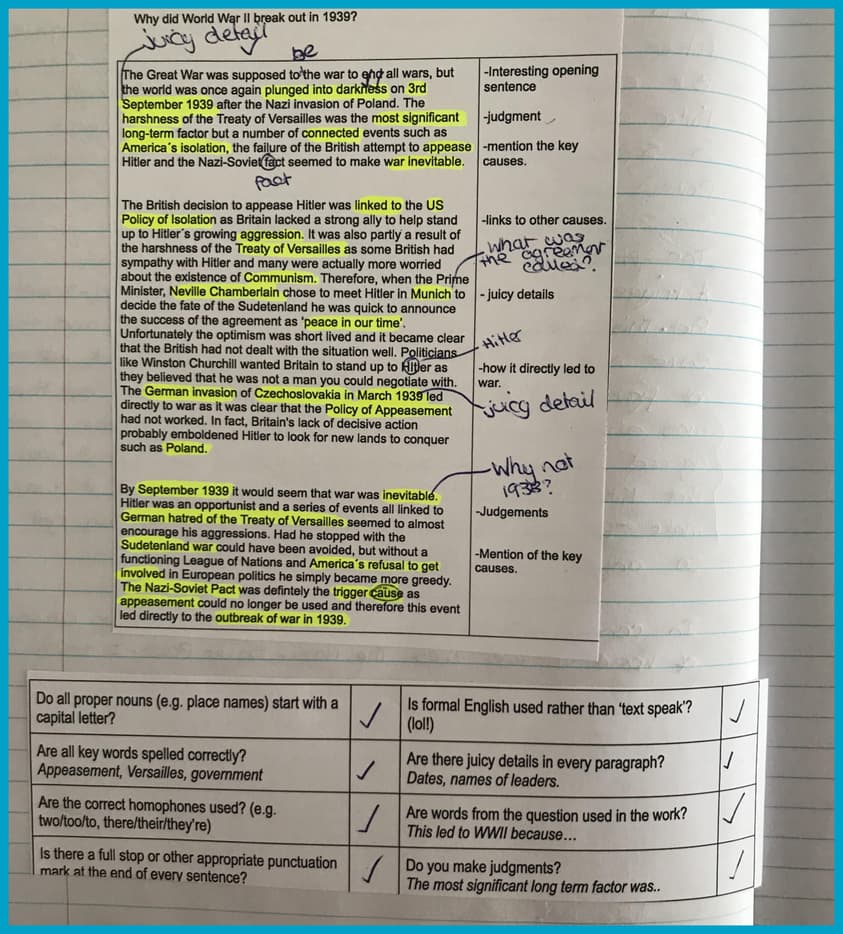 Why did World War II break out in 1939?
juicy detail
be
The Great War was supposed to the war to end all wars, but
the world was once again plunged into darkness on 3rd
September 1939 after the Nazi invasion of Poland. The
harshness of the Treaty of Versailles was the most significant
long-term factor but a number of connected events such as
America´s isolation, the failure of the British attempt to appease
Hitler and the Nazi-Soviet fact seemed to make war inevitable.
Pact
-Interesting opening
sentence
-judgment
-mention the key
causes.
The British decision to appease Hitler was linked to the US
Policy of Isolation as Britain lacked a strong ally to help stand
up to Hitler´s growing aggression. It was also partly a result of
the harshness of the Treaty of Versailles as some British had
sympathy with Hitler and many were actually more worried
about the existence of Communism. Therefore, when the Prime
Minister, Neville Chamberlain chose to meet Hitler in Munich to
decide the fate of the Sudetenland he was quick to announce
the success of the agreement as ‘peace in our time’.
Unfortunately the optimism was short lived and it became clear
that the British had not dealt with the situation well. Politicians
like Winston Churchill wanted Britain to stand up to Hitler as
they believed that he was not a man you could negotiate with.
The German invasion of Czechoslovakia in March 1939 led
directly to war as it was clear that the Policy of Appeasement
had not worked. In fact, Britain's lack of decisive action
probably emboldened Hitler to look for new lands to conquer
such as Poland.
-links to other causes.
what was
the agreemnt
called?
- juicy details
Hitler
-how it directly led to
war.
juicy detail
Why not
1938?
By September 1939 it would seem that war was inevitable.
Hitler was an opportunist and a series of events all linked to
German hatred of the Treaty of Versailles seemed to almost
encourage his aggressions. Had he stopped with the
Sudetenland war could have been avoided, but without a
functioning League of Nations and America´s refusal to get
involved in European politics he simply became more greedy.
The Nazi-Soviet Pact was defintely the trigger cause as
appeasement could no longer be used and therefore this event
led directly to the outbreak of war in 1939.
-Judgements
-Mention of the key
causes.
Do all proper nouns (e.g. place names) start with a
capital letter?
Is formal English used rather than ‘text speak’?
(lol!)
Are all key words spelled correctly?
Appeasement, Versailles, government
Are there juicy details in every paragraph?
Dates, names of leaders.
Are the correct homophones used? (e.g.
two/too/to, there/their/they're)
Are words from the question used in the work?
This led to WWII because…
Is there a full stop or other appropriate punctuation
mark at the end of every sentence?
Do you make judgments?
The most significant long term factor was..